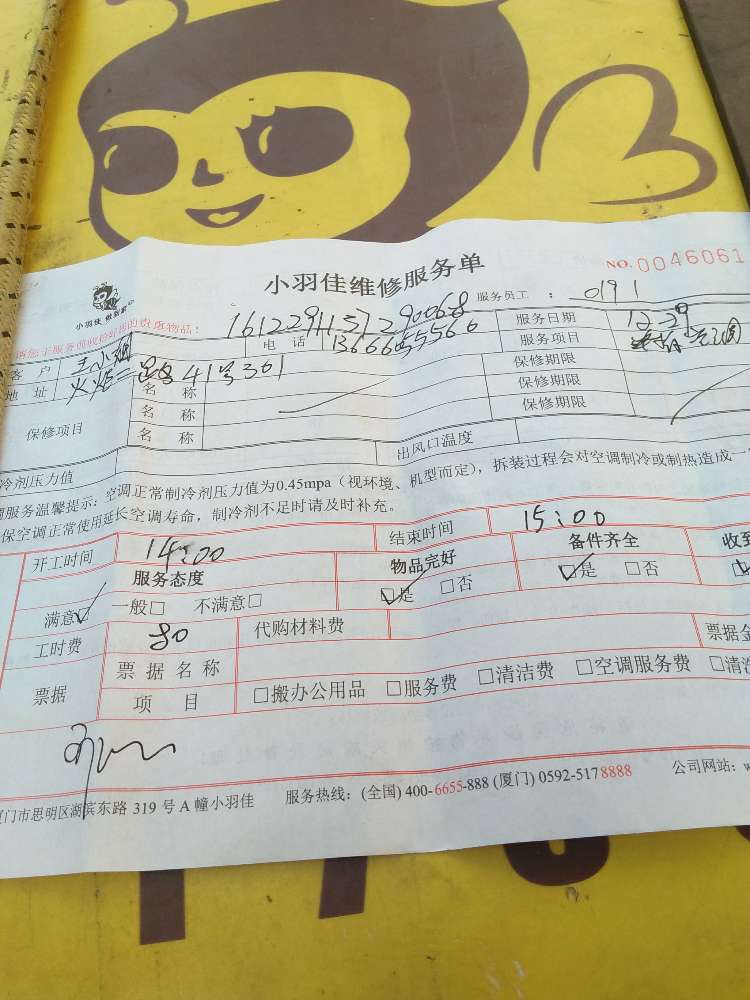 小羽佳维修服务单
NO. 0046061
小羽佳 做到家
服务员工 : 0191
您于服务前收检好您的贵重物品:
1612291137290068
客户
电话 13666055566
服务日期 12-29
地址 火炬二路41号301
服务项目 空调
保修项目
名称
保修期限
名称
保修期限
名称
保修期限
冷剂压力值
出风口温度
调服务温馨提示: 空调正常制冷剂压力值为0.45mpa (视环境、机型而定), 拆装过程会对空调制冷或制热造成一
保空调正常使用延长空调寿命, 制冷剂不足时请及时补充。
开工时间 14:00 结束时间 15:00
服务态度 物品完好 备件齐全 收到
满意☑ 一般□ 不满意□ ☑是 □否 ☑是 □否
工时费 80 代购材料费
票据 票据名称 票据金
项目 □搬办公用品 □服务费 □清洁费 □空调服务费 □清洗
厦门市思明区湖滨东路 319 号 A 幢小羽佳 服务热线: (全国) 400-6655-888 (厦门) 0592-5178888 公司网站: w